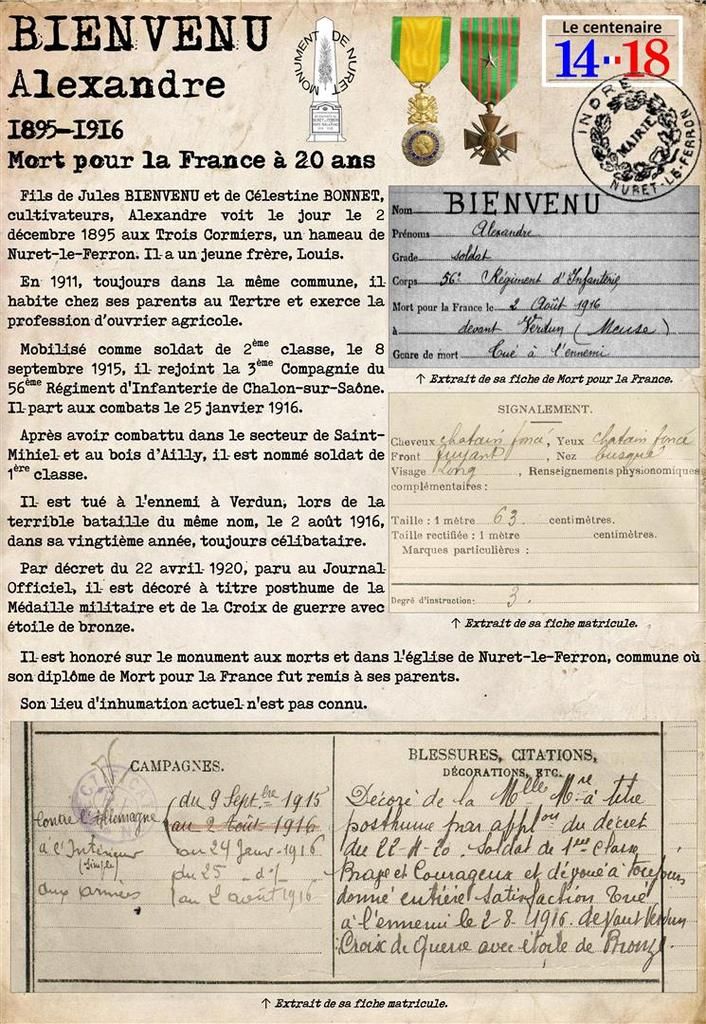 BIENVENU
Alexandre
1895-1916
Mort pour la France à 20 ans
MONUMENT DE NURET
Le centenaire
14··18
INDRE
MAIRIE
NURET-LE-FERRON
Fils de Jules BIENVENU et de Célestine BONNET,
cultivateurs, Alexandre voit le jour le 2
décembre 1895 aux Trois Cormiers, un hameau de
Nuret-le-Ferron. Il a un jeune frère, Louis.
En 1911, toujours dans la même commune, il
habite chez ses parents au Tertre et exerce la
profession d'ouvrier agricole.
Mobilisé comme soldat de 2ème classe, le 8
septembre 1915, il rejoint la 3ème Compagnie du
56ème Régiment d'Infanterie de Chalon-sur-Saône.
Il part aux combats le 25 janvier 1916.
Après avoir combattu dans le secteur de Saint-
Mihiel et au bois d'Ailly, il est nommé soldat de
1ère classe.
Il est tué à l'ennemi à Verdun, lors de la
terrible bataille du même nom, le 2 août 1916,
dans sa vingtième année, toujours célibataire.
Par décret du 22 avril 1920, paru au Journal
Officiel, il est décoré à titre posthume de la
Médaille militaire et de la Croix de guerre avec
étoile de bronze.
Nom BIENVENU
Prénoms Alexandre
Grade soldat
Corps 56e Régiment d'Infanterie
Mort pour la France le 2 Août 1916
à devant Verdun (Meuse)
Genre de mort Tué à l'ennemi
↑ Extrait de sa fiche de Mort pour la France.
SIGNALEMENT.
Cheveux chatain foncé, Yeux chatain foncé
Front fuyant, Nez busqué
Visage long, Renseignements physionomiques
complémentaires :
Taille : 1 mètre 63 centimètres.
Taille rectifiée : 1 mètre centimètres.
Marques particulières :
Degré d'instruction: 3.
↑ Extrait de sa fiche matricule.
Il est honoré sur le monument aux morts et dans l'église de Nuret-le-Ferron, commune où
son diplôme de Mort pour la France fut remis à ses parents.
Son lieu d'inhumation actuel n'est pas connu.
CAMPAGNES.
Contre l'Allemagne
du 9 Septbre 1915
au 2 Août 1916
à l'Intérieur
(Simple)
au 24 Janv. 1916
aux armées
du 25 -d°-
au 2 août 1916
BLESSURES, CITATIONS,
DÉCORATIONS, ETC.
Décoré de la Mlle Mre à titre
posthume par applon du décret
du 22-4-20. Soldat de 1ère Classe
Brave et Courageux et dévoué a toujours
donné entière satisfaction Tué
à l'ennemi le 2-8-1916. devant Verdun
Croix de Guerre avec étoile de Bronze.
↑ Extrait de sa fiche matricule.